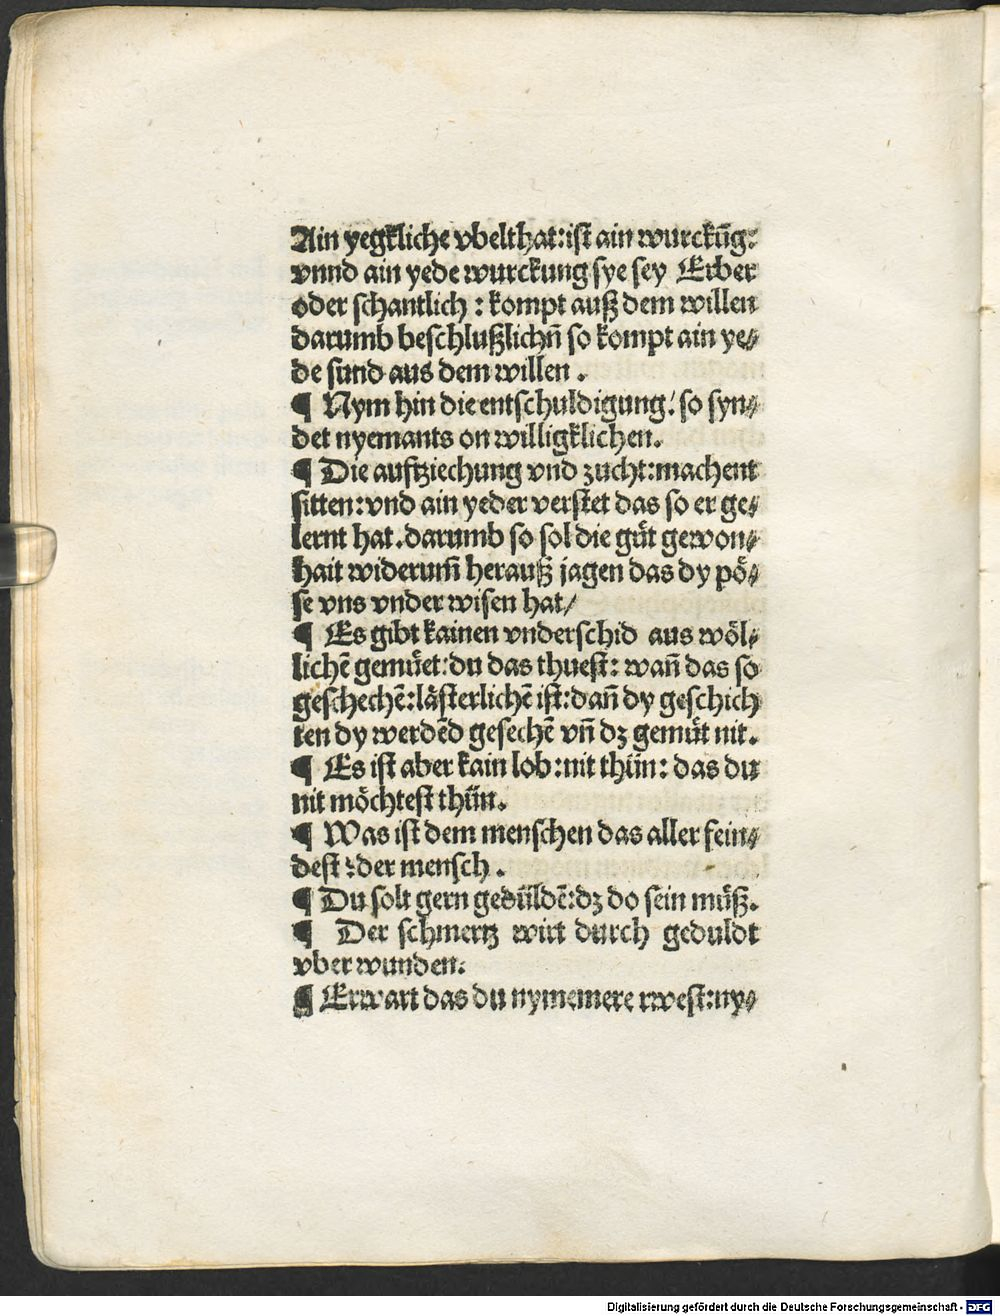 Ain yegkliche vbelthat: ist ain wurckūg:
vnnd ain yede wurckung sye sey Erber
oder schantlich : kompt auß dem willen
darumb beschlußlichn̄ so kompt ain ye⸗
de sund aus dem willen .
¶ Nym hin die entschuldigung/ so syn⸗
det nyemants on willigklichen.
¶ Die auftziechung vnd zucht: machent
sitten: vnd ain yeder verstet das so er ge⸗
lernt hat. darumb so sol die gůt gewon⸗
hait widerum̄ herauß jagen das dy pö⸗
se vns vnder wisen hat/
¶ Es gibt kainen vnderschid aus wöl⸗
lichē gemůet: du das thuest: wan̄ das so
geschechē: lästerlichē ist: dan̄ dy geschich
ten dy werdēd gesechē vn̄ dz gemůt nit.
¶ Es ist aber kain lob: nit thůn: das du
nit möchtest thůn.
¶ Was ist dem menschen das aller fein⸗
dest : der mensch .
¶ Du solt gern gedůldē: dz do sein můß.
¶ Der schmertz wirt durch geduldt
vber wunden.
¶ Erwart das du nymemere rwest: ny⸗
Digitalisierung gefördert durch die Deutsche Forschungsgemeinschaft - DFG